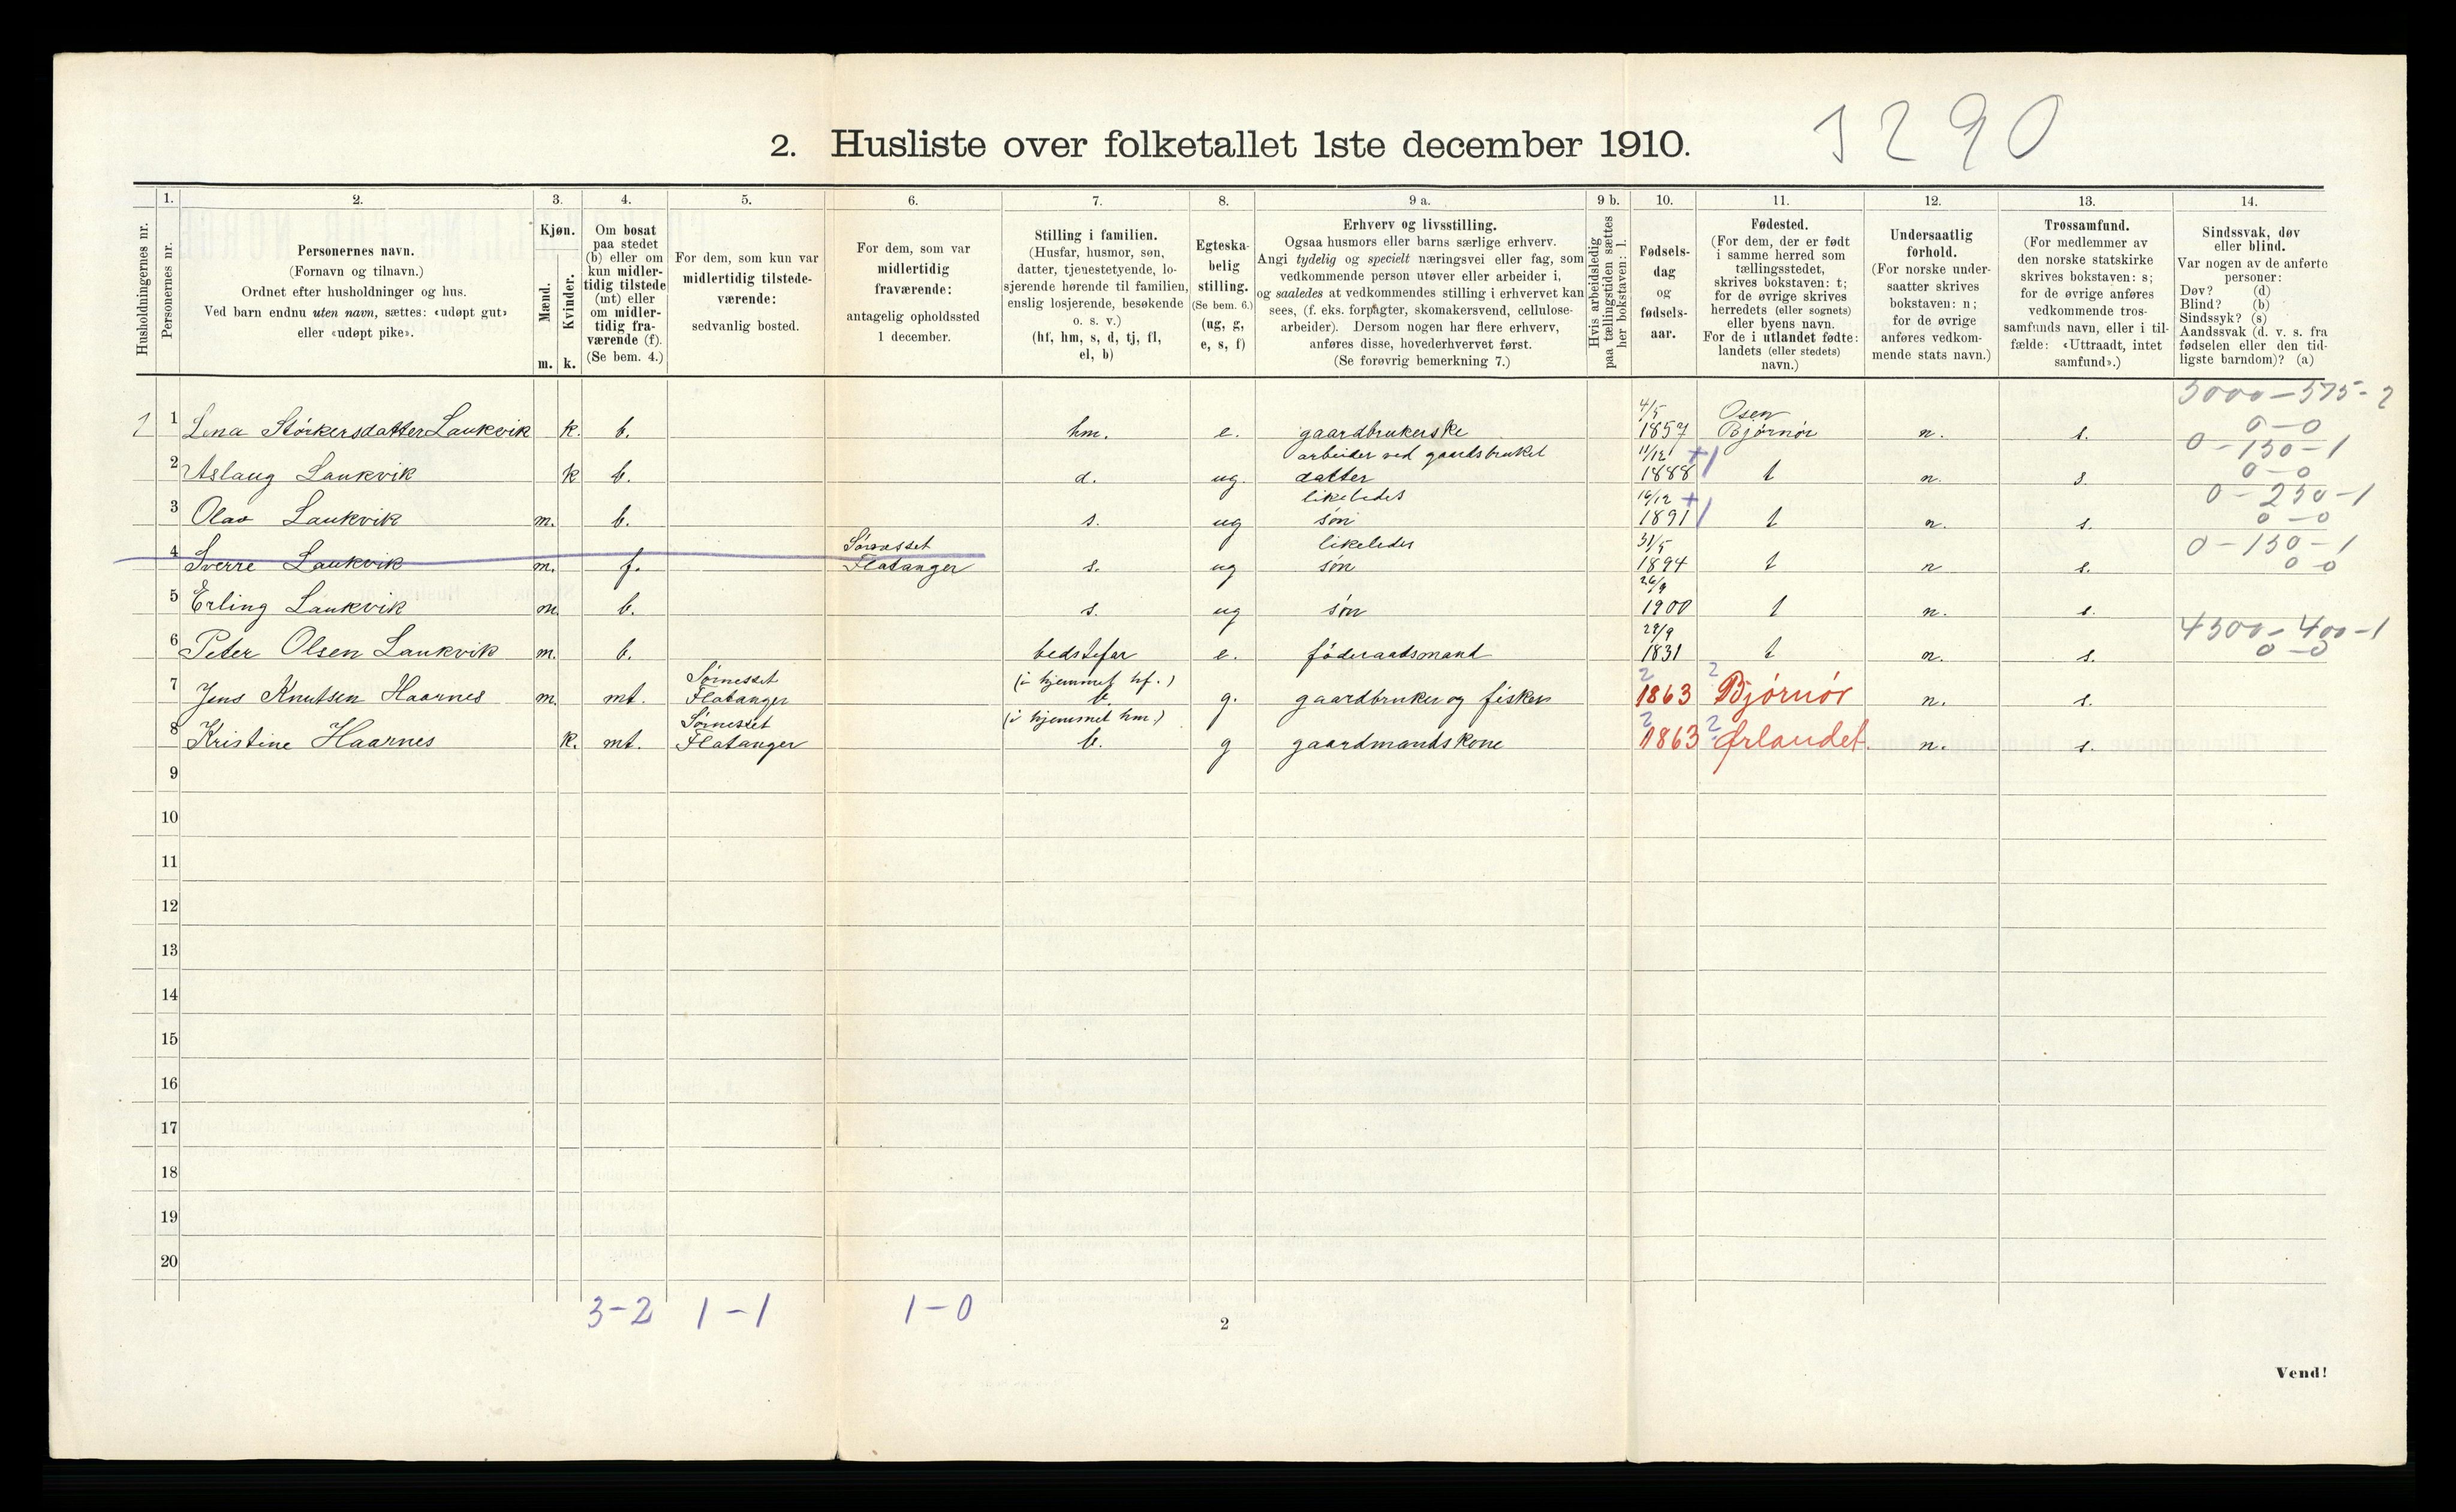 2. Husliste over folketallet 1ste december 1910.
1290
Husholdningernes nr.
1.
Personernes nr.
2.
Personernes navn.
(Fornavn og tilnavn.)
Ordnet efter husholdninger og hus.
Ved barn endnu uten navn, sættes: «udøpt gut»
eller «udøpt pike».
3.
Kjøn.
Mænd.
Kvinder.
m. k.
4.
Om bosat
paa stedet
(b) eller om
kun midler-
tidig tilstede
(mt) eller
om midler-
tidig fra-
værende (f).
(Se bem. 4.)
5.
For dem, som kun var
midlertidig tilstede-
værende:
sedvanlig bosted.
6.
For dem, som var
midlertidig
fraværende:
antagelig opholdssted
1 december.
7.
Stilling i familien.
(Husfar, husmor, søn,
datter, tjenestetyende, lo-
sjerende hørende til familien,
enslig losjerende, besøkende
o. s. v.)
(hf, hm, s, d, tj, fl,
el, b)
8.
Egteska-
belig
stilling.
(Se bem. 6.)
(ug, g,
e, s, f)
9 a.
Erhverv og livsstilling.
Ogsaa husmors eller barns særlige erhverv.
Angi tydelig og specielt næringsvei eller fag, som
vedkommende person utøver eller arbeider i,
og saaledes at vedkommendes stilling i erhvervet kan
sees, (f. eks. forpagter, skomakersvend, cellulose-
arbeider). Dersom nogen har flere erhverv,
anføres disse, hovederhvervet først.
(Se forøvrig bemerkning 7.)
9 b.
Hvis arbeidsledig
paa tællingstiden sættes
her bokstaven: l.
10.
Fødsels-
dag
og
fødsels-
aar.
11.
Fødested.
(For dem, der er født
i samme herred som
tællingsstedet,
skrives bokstaven: t;
for de øvrige skrives
herredets (eller sognets)
eller byens navn.
For de i utlandet fødte:
landets (eller stedets)
navn.)
12.
Undersaatlig
forhold.
(For norske under-
saatter skrives
bokstaven: n;
for de øvrige
anføres vedkom-
mende stats navn.)
13.
Trossamfund.
(For medlemmer av
den norske statskirke
skrives bokstaven: s;
for de øvrige anføres
vedkommende tros-
samfunds navn, eller i til-
fælde: «Uttraadt, intet
samfund».)
14.
Sindssvak, døv
eller blind.
Var nogen av de anførte
personer:
Døv? (d)
Blind? (b)
Sindssyk? (s)
Aandssvak (d. v. s. fra
fødselen eller den tid-
ligste barndom)? (a)
3000-575-2
4/5 Osen
1 1 Lena Störkersdatter Laukvik k. b. hm. e. gaardbrukerske 1857 Bjørnör n. s. 0-0
arbeider ved gaardsbruket 11/12 0-150-1
2 Aslaug Laukvik k b. d. ug. datter 1888 t n. s. 0-0
likeledes 16/12 0-250-1
3 Olav Laukvik m. b. s. ug søn 1891 t n. s. 0-0
Sørnesset likeledes 31/5 0-150-1
4 Sverre Laukvik m. f. Flatanger s. ug søn 1894 t n s. 0-0
26/9
5 Erling Laukvik m. b. s. ug søn 1900 t n. s.
29/9 4300-400-1
6 Peter Olsen Laukvik m. b. bedstefar e. föderaadsmand 1831 t n. s. 0-0
Sørnesset (i hjemmet hf.)
7 Jens Knutsen Haarnes m. mt. Flatanger b. g. gaardbruker og fisker 1863 Bjørnör n. s.
Sørnesset (i hjemmet hm.)
8 Kristine Haarnes k. mt. Flatanger b. g gaardmandskone 1863 Ørlandet. n. s.
9
10
11
12
13
14
15
16
17
18
19
20
3-2 1-1 1-0
2
Vend!